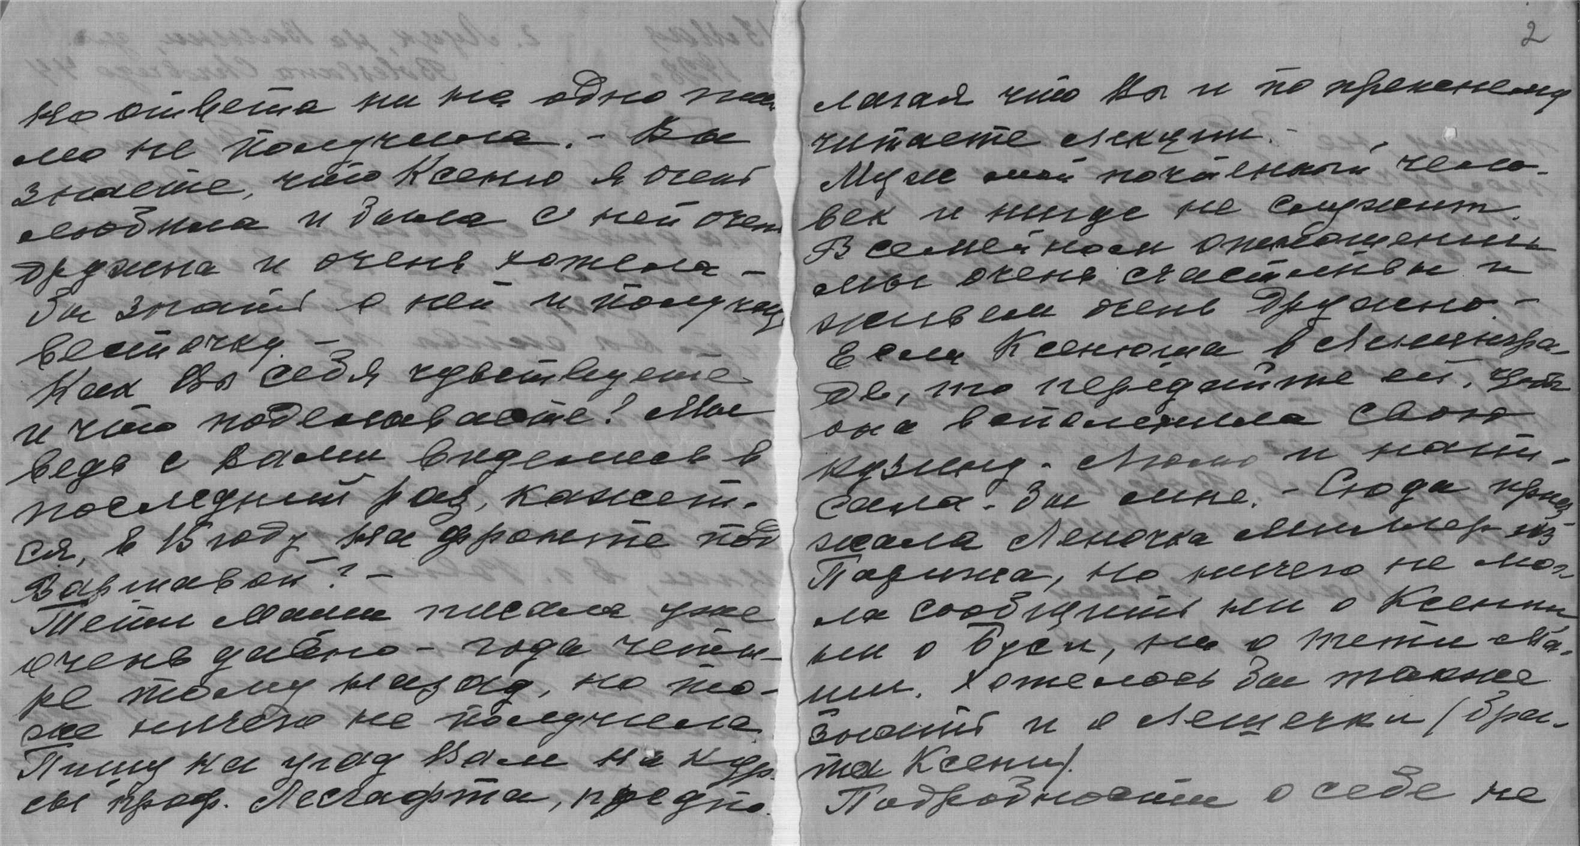 но ответа ни на одно пись
мо не получила. – Вы
знаете, что Ксеню я очень
любила и была с ней очень
дружна и очень хотела –
бы знать о ней и получить
весточку. –
Как Вы себя чувствуете
и что поделываете? Мы
ведь с Вами виделись в
последний раз, кажет-
ся, в 15 году на фронте под
Варшавой? –
Тети Мани писала уже
очень давно – года четы-
ре тому назад, но то-
же ничего не получила
Пишу на угад Вам на кур
сы проф. Лесгафта, предпо-
2
лагая что Вы и по прежнему
читаете лекции. –
Муж мой почтенный чело-
век и нигде не служит.
В семейном отношении
мы очень счастливы и
живем очень дружно. –
Если Ксенюша в Ленингра-
де, то передайте ей, чтоб
она вспомнила свою
кузину и напи-
сала-бы мне. – Сюда приез
жала Леночка Миллер из
Парижа, но ничего не мог
ла сообщить ни о Ксении
ни о Буси, ни о тети Ма-
ни. Хотелось бы также
знать и о Лешечки (бра-
та Ксени).
Подробности о себе не